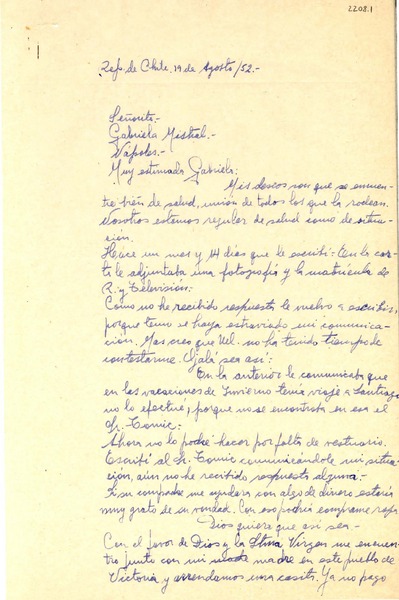 2208.1
Rep. de Chile. 19 de Agosto/52.-
Señorita.-
Gabriela Mistral.-
Nápoles.-
Muy estimada Gabriela:
Mis deseos son que se encuen-
tre bién de salud, unión de todos los que la rodean.
Nosotros estamos regular de salud como de situa-
ción.
Hace un mes y 14 días que le escribí: En la car-
ta le adjuntaba una fotografía y la matrícula de
R. y Televisión:
Como no he recibido respuesta le vuelvo a escribir,
porque temo se haya estraviado mi comunica-
ción. Mas creo que Ud. no ha tenido tiempo de
contestarme. Ojalá sea así:
En la anterior le comunicaba que
en las vacaciones de Invierno tenía viaje a Santiago
no lo efectué; porque no se encontraba en esa el
Sr. Tomic:
Ahora no lo podré hacer por falta de vestuario.
Escribí al Sr. Tomic comunicándole mi situa-
ción, aún no he recibido respuesta alguna:
Si su compadre me ayudara con algo de dinero estaría
muy grato de su bondad. Con eso podría comprarme ropa
Dios quiera que así sea.-
Con el favor de Dios y la Stma Virgen me encuen
tro junto con mi madre en este pueblo de
Victoria y arrendamos una casita. Ya no pago